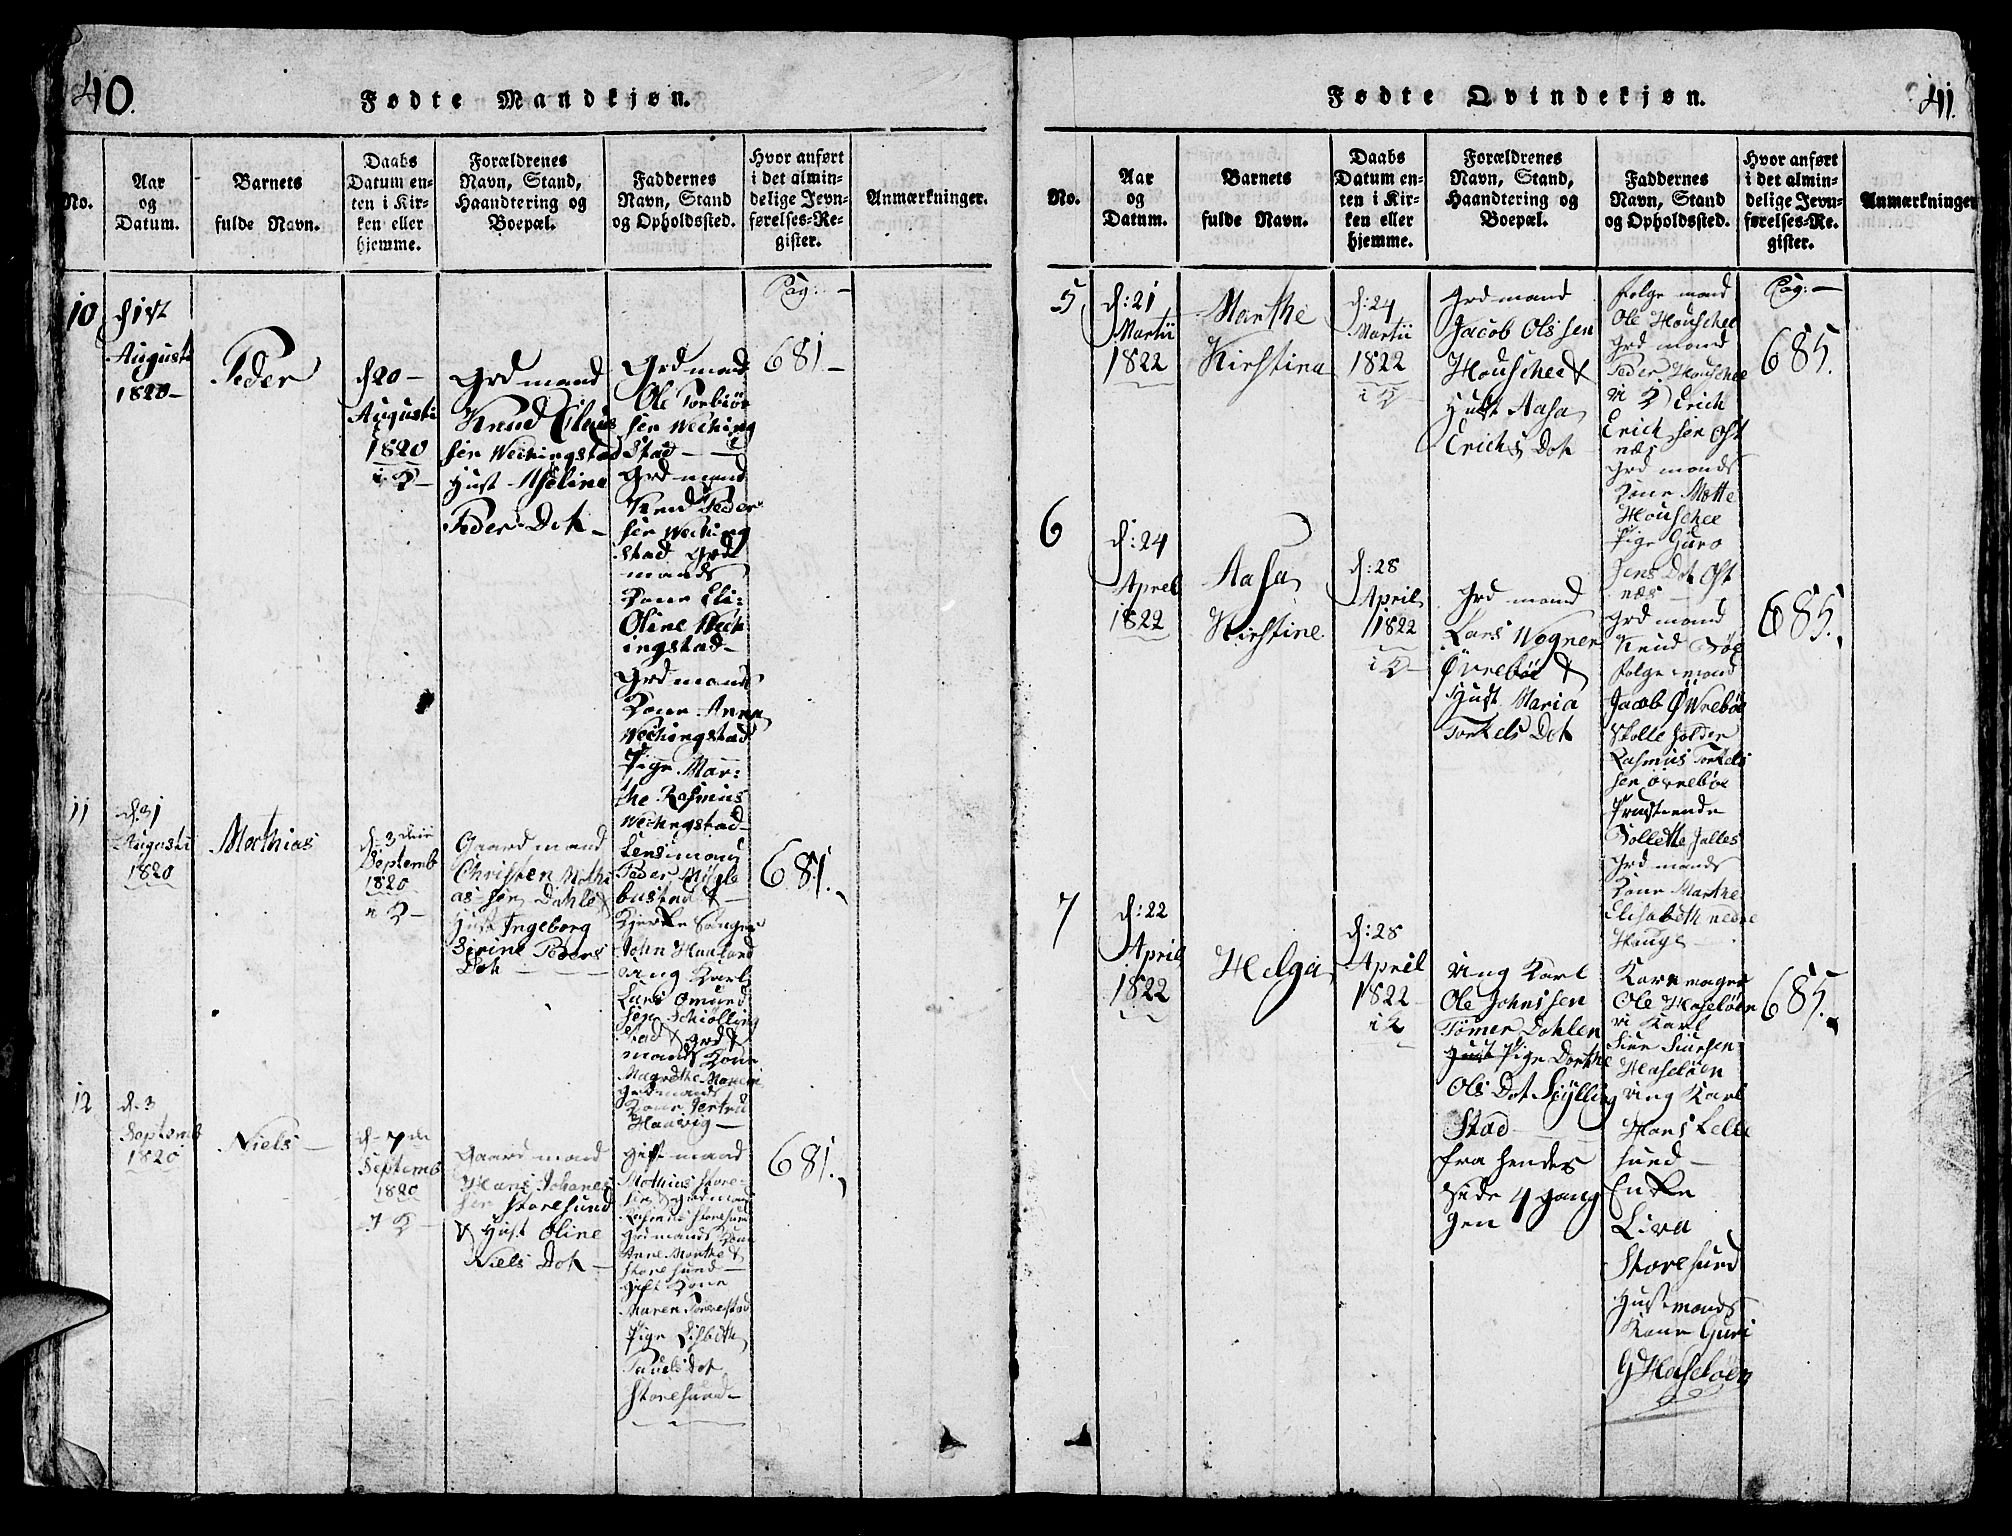 40.
Fødte Mandkjøn.
No.
Aar
og
Datum.
Barnets
fulde Navn.
Daabs
Datum en-
ten i Kir-
ken eller
hjemme.
Forældrenes
Navn, Stand,
Haandtering og
Boepæl.
Faddernes
Navn, Stand
og Opholdssted.
Hvor anført
i det almin-
delige Jevn-
førelses-Re-
gister.
Anmærkninger.
10
Augusti
1820
Peder
d 20
Augusti
1820
Grd mand
Knud Claus
sen Wechingstad
Hust Aselina
Peders Dot
Grd mand
Ole Torbiør
sen Weching
stad
Grd mand
Knud Peder
sen Weching
stad Grd
mands
Kone Eli:
Oline Wech
ingstad
Grd mands
Kone Anna
Wechingstad
Pige Mar:
the Rasmus
Wechingstad
Pag:
681
11
d. 31
Augusti
1820
Mathias
d. 3
Septemb
1820
Gaard mand
Christen Mathi
as sen Dahle &
Hust Ingeborg
Sirine Peders
Dot
Lensmand
Peder Møgle
bustad &
Kierke Sanger
John Haaland
ung Karl
Lars Omund
sen Schiolling
stad & Grd
mands Kone
Magrethe
Grdmands
Kone
Haavig
681.
12
d. 3
Septemb
1820
Niels
d. 7
Septemb
1820
Gaard mand
Hans Johanes
sen Storesund
& Hust Oline
Niels Dot
Gift mand
Mathias Store
Rasmus Storesund
Grdmands Kone
Anne Marthe &
Storesund
Gift Kone
Maren
Pige Lisbeth
Paulsdot
Storesund
681.
41.
Fødte Qvindekjøn.
No.
Aar
og
Datum.
Barnets
fulde Navn.
Daabs
Datum en-
ten i Kir-
ken eller
hjemme.
Forældrenes
Navn, Stand,
Haandtering og
Boepæl.
Faddernes
Navn, Stand
og Opholdssted.
Hvor anført
i det almin-
delige Jevn-
førelses-Re-
gister.
Anmærkninger
5
d: 21
Martii
1822
Marthe
Kirstina
d: 24
Martii
1822
Grd mand
Jacob Olssen
Houschee &
Hust Aasa
Erichs Dot
folge mand
Ole Houschee
Grd mand
Peder Houschee
Erich
Erich sen Ost
næs
Grd mands
Kone Mette
Houschee
Pige Guro
Jens Dot Ost
næs
Pag:
685.
6
d: 24
Aprel
1822
Aasa
Kirstine
d: 28
April
1822
Grd mand
Lars Wogner
Øvrebøe &
Hust Maria
Torkels Dot
Grd mand
Knud Bøe
folge mand
Jacob Øvrebøe
Skolle holder
Rasmus Torkels
sen Øvrebøe
Grd mands
Kone Marthe
Elisabeth nedre
Hauge
685.
7
d: 22
April
1822
Helga
d: 28
April
1822
ung Karl
Ole Johnssen
Tømer Dahlen
Hust Pige Dorthe
Ols Dot Skylling
Stad
fra hendes
side 4 gang
gen
Ole Haseløen
Karl
Siur Siursen
Haseløen
ung Karl
Hans Lille
sund
Enke
Liva
Storesund
Hust mands
Kone Guri
G Haseløen
685.